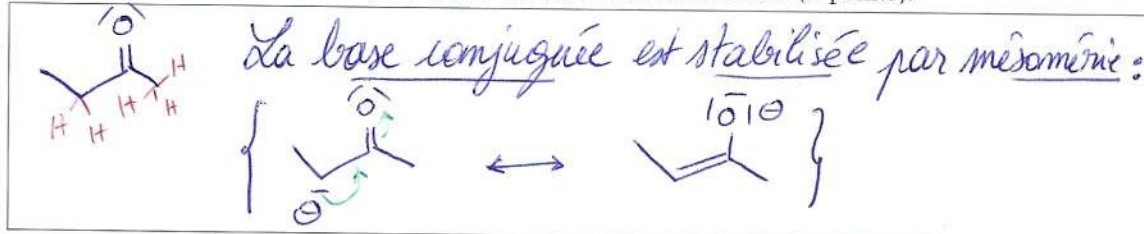 La base conjuguée est stabilisée par mésomérie :
O
H
H H H H
O
|O| ⊖
⊖